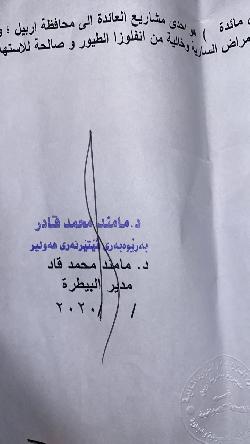 مائدة ) هو احدى مشاريع العائدة الى محافظة اربيل ؛ و
مراض السارية وخالية من انفلوزا الطيور و صالحة للاسته
د.مامند محمد قادر
بەڕێوەبەری ڤێتێرنەری هەولێر
د. مامند محمد قاد
مدير البيطرة
/ / ٢٠٢٠